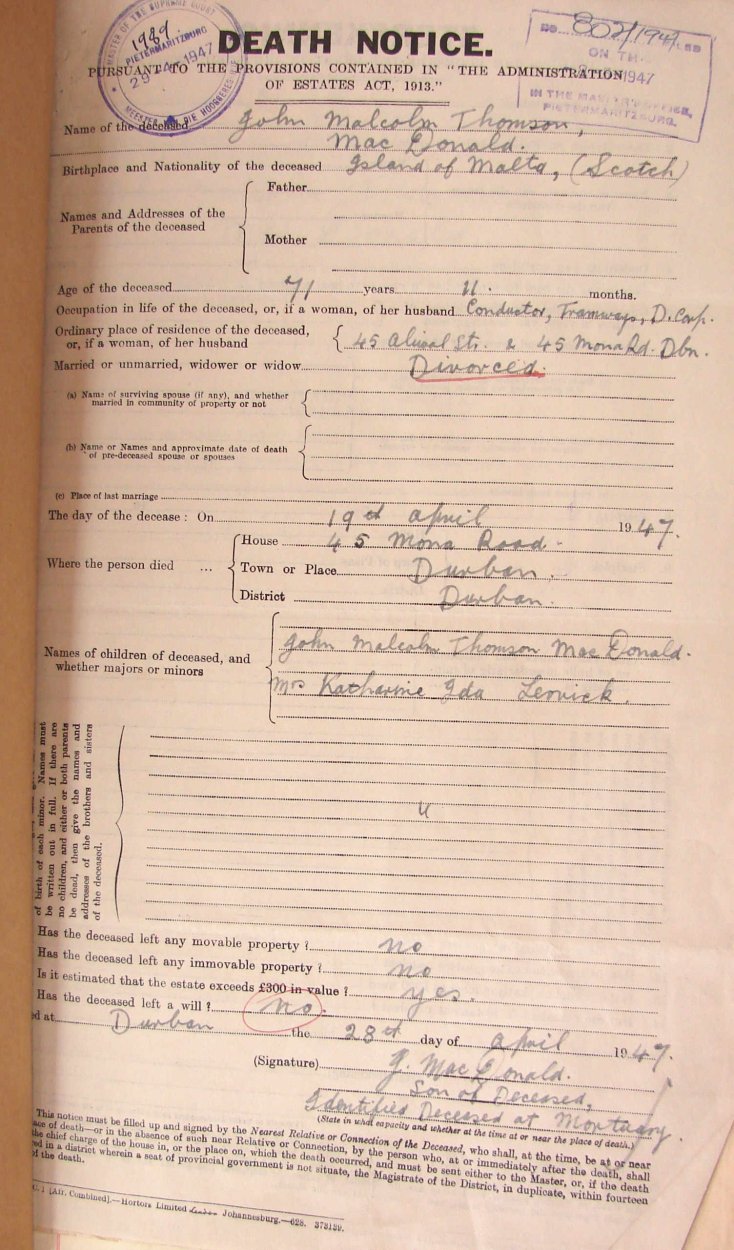 MASTER OF THE SUPREME COURT
1989
PIETERMARITZBURG
29 APR 1947
MEESTER VAN DIE HOOGGEREGSHOF
No 802/1947
ON TH
1947
IN THE MASTER'S OFFICE,
PIETERMARITZBURG.
DEATH NOTICE.
PURSUANT TO THE PROVISIONS CONTAINED IN "THE ADMINISTRATION
OF ESTATES ACT, 1913."
Name of the deceased John Malcolm Thomson,
Mac Donald.
Birthplace and Nationality of the deceased Island of Malta, (Scotch)
Names and Addresses of the Parents of the deceased
Father
Mother
Age of the deceased 71 years 11 months.
Occupation in life of the deceased, or, if a woman, of her husband Conductor, Tramways, D. Corp.
Ordinary place of residence of the deceased, or, if a woman, of her husband 45 Aliwal Str. & 45 Mona Rd. Dbn.
Married or unmarried, widower or widow Divorced.
(a) Name of surviving spouse (if any), and whether married in community of property or not
(b) Name or Names and approximate date of death of pre-deceased spouse or spouses
(c) Place of last marriage
The day of the decease: On 19th April 1947.
Where the person died ...
House 45 Mona Road
Town or Place Durban.
District Durban.
Names of children of deceased, and whether majors or minors
John Malcolm Thomson Mac Donald.
Mrs Katharine Ida Lerwick.
of birth of each minor. Names must
be written out in full. If there are
no children, and either or both parents
be dead, then give the names and
addresses of the brothers and sisters
of the deceased.
Has the deceased left any movable property? no
Has the deceased left any immovable property? no
Is it estimated that the estate exceeds £300 in value? yes.
Has the deceased left a will? no.
ed at Durban the 28th day of April 1947.
(Signature) J. Mac Donald.
Son of Deceased,
Identified Deceased at Mortuary.
(State in what capacity and whether at the time at or near the place of death.)
This notice must be filled up and signed by the Nearest Relative or Connection of the Deceased, who shall, at the time, be at or near
ace of death—or in the absence of such near Relative or Connection, by the person who, at or immediately after the death, shall
the chief charge of the house in, or the place on, which the death occurred, and must be sent either to the Master, or, if the death
red in a district wherein a seat of provincial government is not situate, the Magistrate of the District, in duplicate, within fourteen
of the death.
C. 1 [Afr. Combined].—Hortors Limited Johannesburg.—628. 373189.